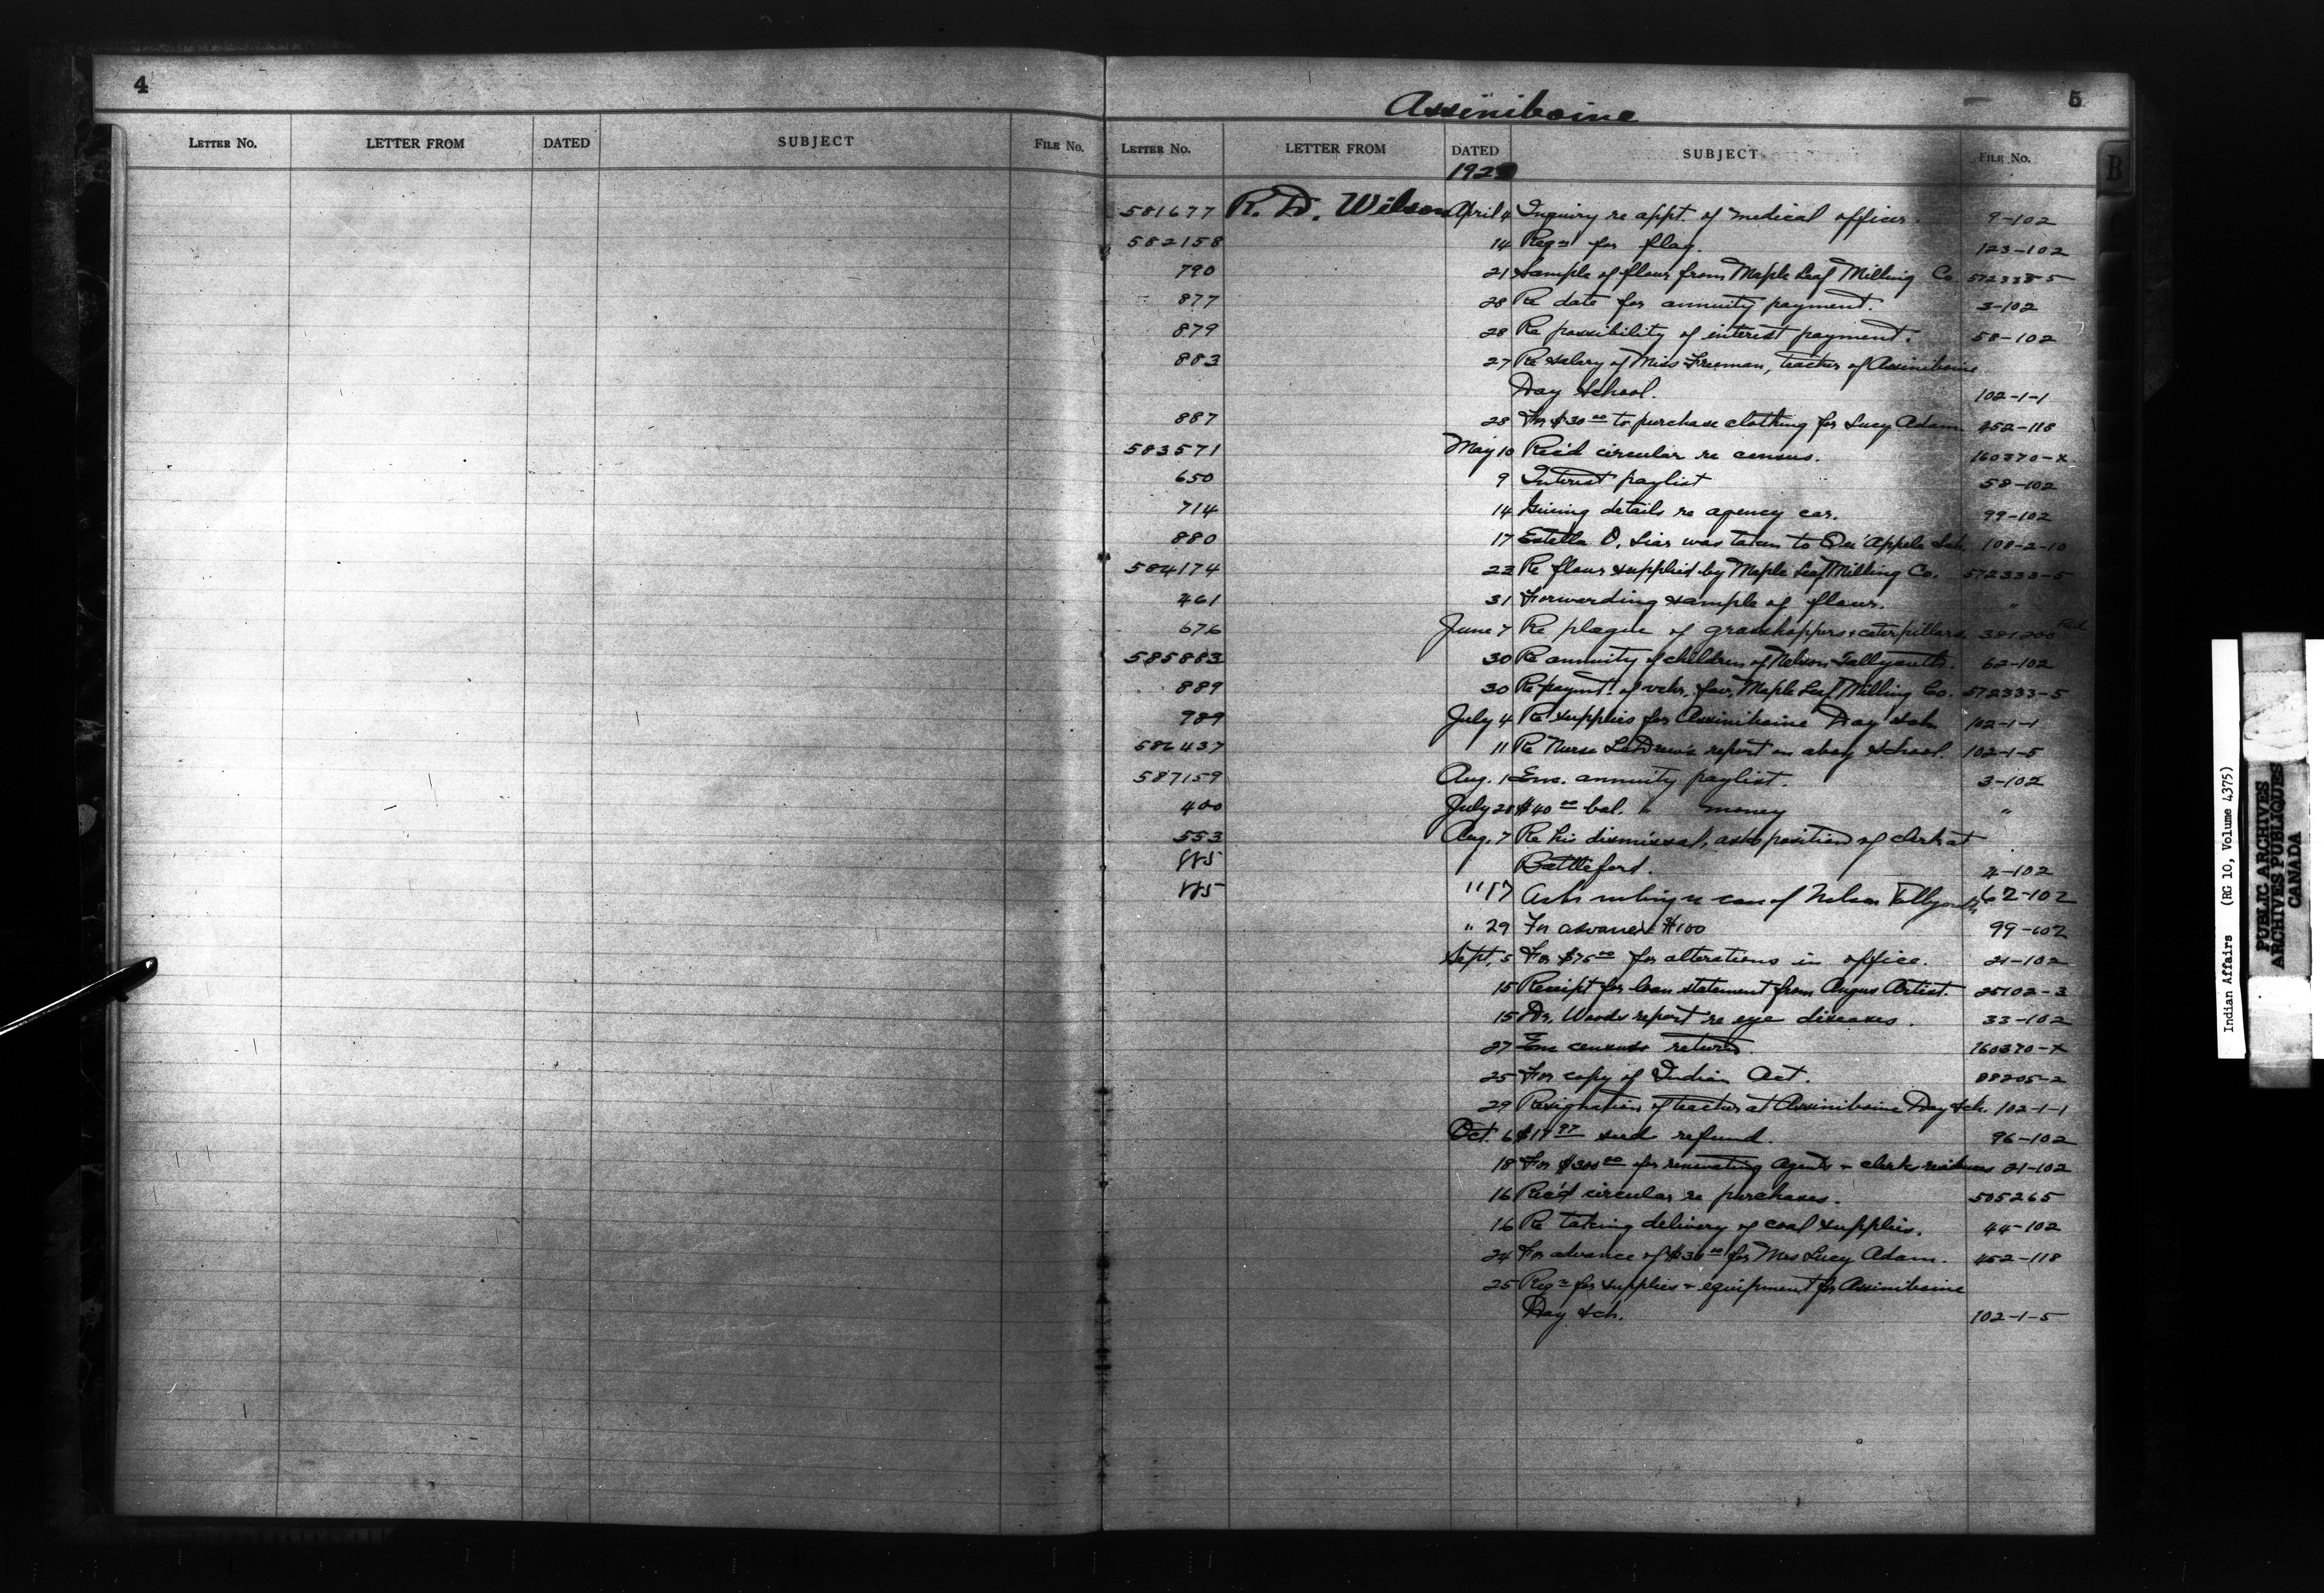 4
LETTER No. LETTER FROM DATED SUBJECT FILE No.
5
Assiniboine
LETTER No. LETTER FROM DATED SUBJECT FILE No.
B
192
581677 R. D. Wilson April 4 Inquiry re appt. of medical officer. 9-102
582158 14 Reqn for flag. 123-102
790 21 Sample of flour from Maple Leaf Milling Co. 572333-5
877 28 Re date for annuity payment. 3-102
879 28 Re possibility of interest payment. 58-102
883 27 Re salary of Miss Freeman, teacher of Assiniboine
Day School. 102-1-1
887 28 For $30 00 to purchase clothing for Lucy Adam 452-118
583571 May 10 Rec'd circular re census. 160370-X
650 9 Interest paylist 58-102
714 14 Giving details re agency car. 99-102
880 17 Estella O. Liar was taken to Qu'Appelle Sch. 108-2-10
584174 22 Re flour supplied by Maple Leaf Milling Co. 572333-5
461 31 Forwarding sample of flour. "
676 June 7 Re plague of grasshoppers & caterpillars. 381200
585883 30 Re annuity of children of Nelson Tallyouth. 62-102
889 30 Re paymt. of vchr. fav. Maple Leaf Milling Co. 572333-5
989 July 4 Re supplies for Assiniboine Day Sch. 102-1-1
586437 11 Re Nurse report on abov school. 102-1-5
587159 Aug. 1 Enc. annuity paylist. 3-102
400 July 28 $40 00 bal. " money "
553 Aug. 7 Re his dismissal, asks position of clerk at
885 Battleford. 4-102
885 " 17 Asks ruling re case of Nelson Tallyouth 62-102
" 29 For advance $100 99-102
Sept. 5 For $75 00 for alterations in office. 21-102
15 Receipt for loan statement from Angus Artist. 25102-3
15 Dr. Woods report re eye diseases. 33-102
27 Enc census return. 160370-X
25 For copy of Indian Act. 88205-2
29 Resignation of teacher at Assiniboine Day Sch. 102-1-1
Oct. 6 $17 97 seed refund. 96-102
18 For $300 00 for renovating agents & clerks residences 21-102
16 Rec'd circular re purchases. 505265
16 Re taking delivery of coal supplies. 44-102
24 For advance of $30 00 for Mrs Lucy Adam. 452-118
25 Reqn for supplies & equipment for Assiniboine
Day Sch. 102-1-5
Indian Affairs (RG 10, Volume 4375)
PUBLIC ARCHIVES
ARCHIVES PUBLIQUES
CANADA